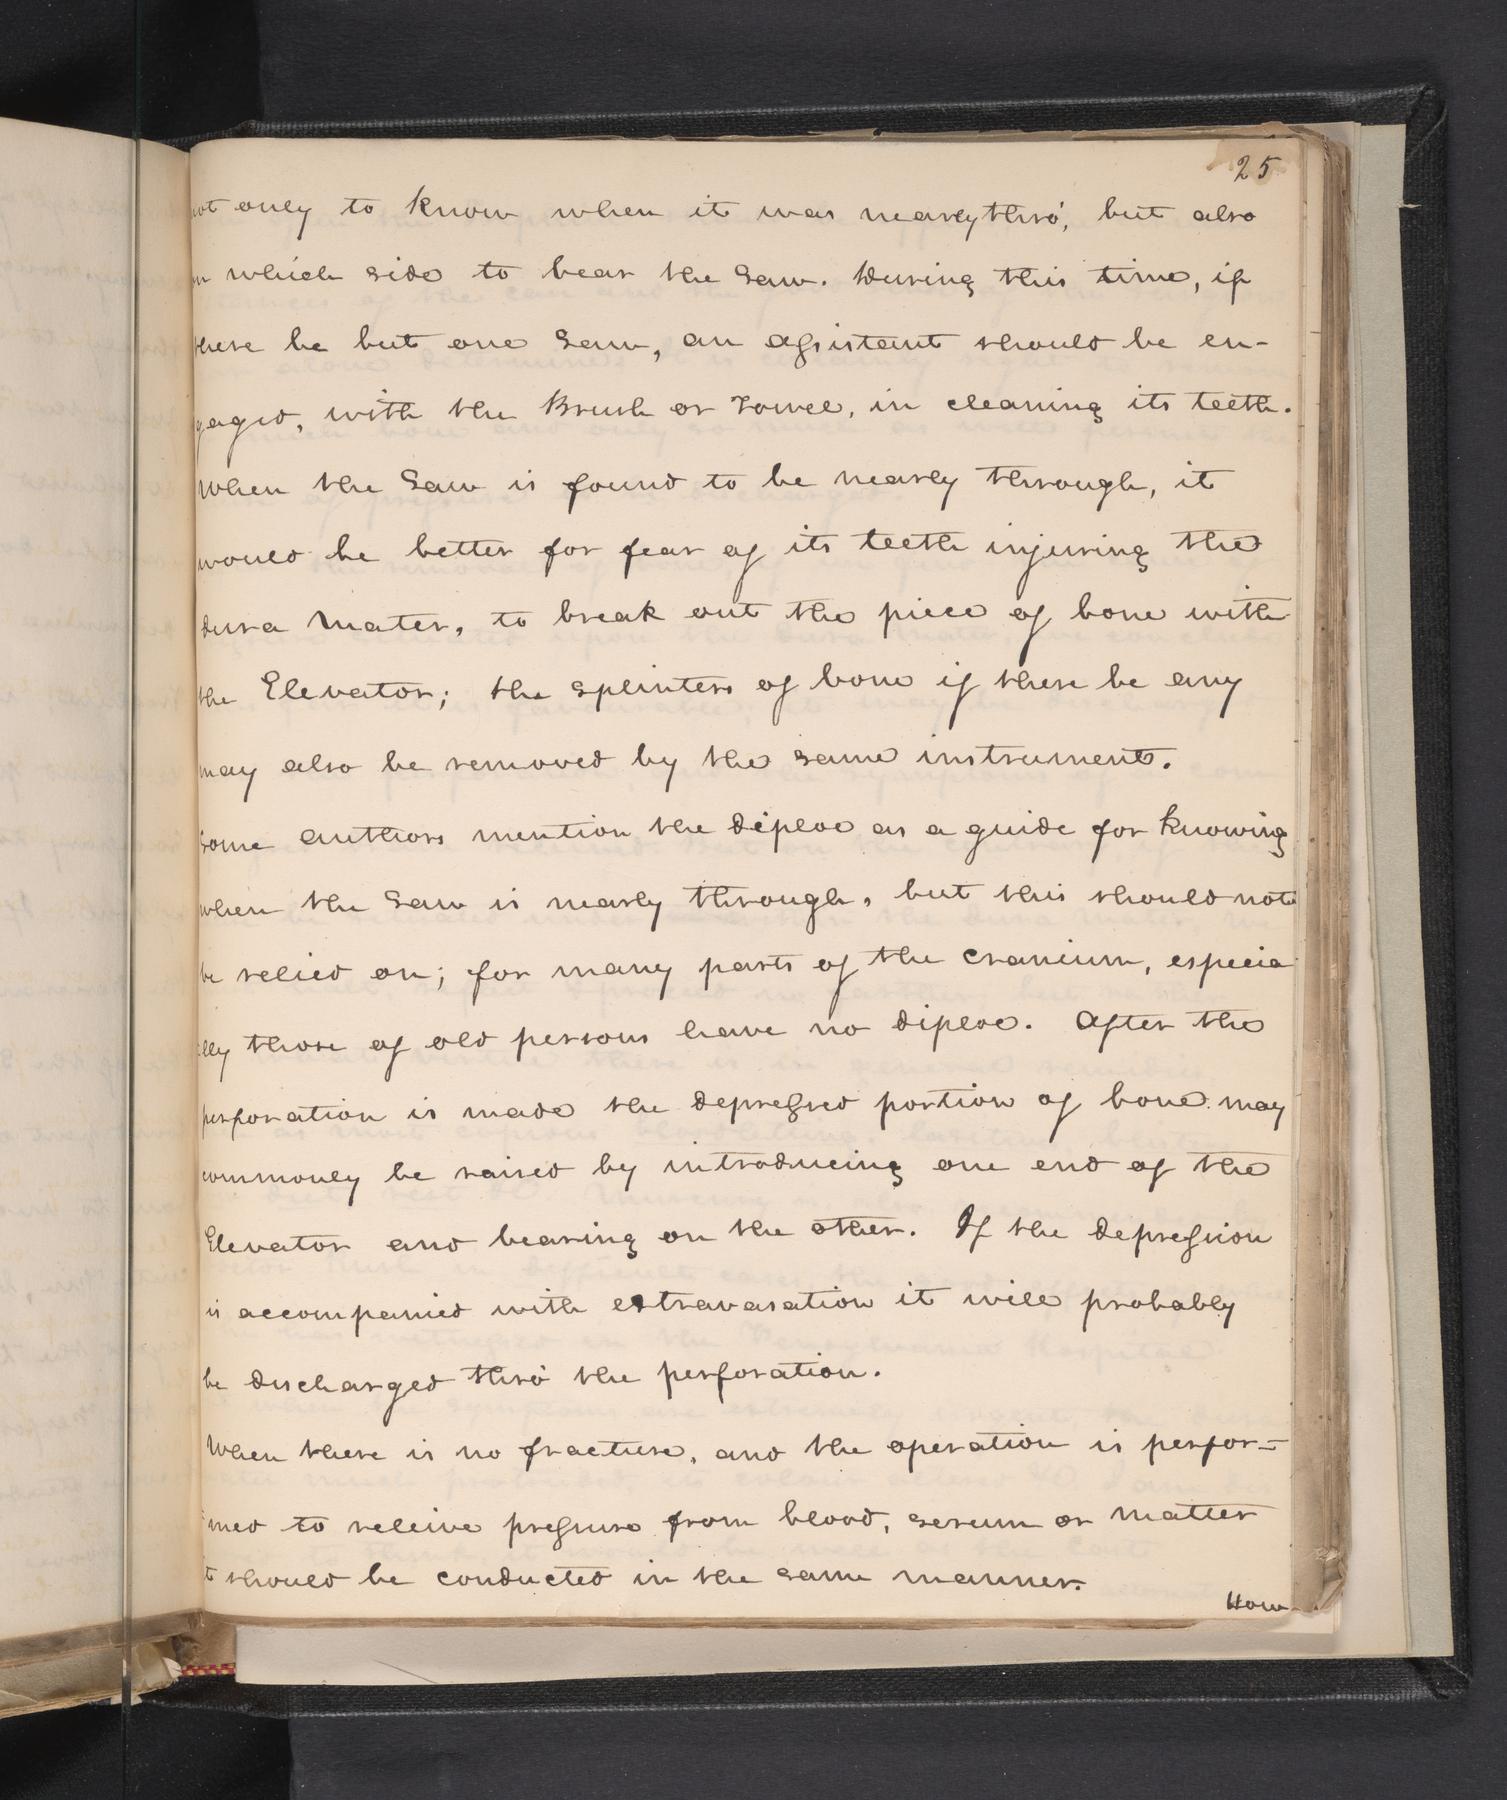 25
not only to know when it was nearly thro', but also
on which side to bear the Saw. During this time, if
there be but one Saw, an assistant should be en-
gaged, with the Brush or Towel, in cleaning its teeth.
When the Saw is found to be nearly through, it
would be better for fear of its teeth injuring the
dura Mater, to break out the piece of bone with
the Elevator; the splinters of bone if there be any
may also be removed by the same instrument.
Some authors mention the diploe as a guide for knowing
when the Saw is nearly through, but this should not
be relied on; for many parts of the Cranium, especia
lly those of old persons have no diploe. After the
perforation is made the depressed portion of bone may
commonly be raised by introducing one end of the
Elevator and bearing on the other. If the depression
is accompanied with extravasation it will probably
be discharged thro' the perforation.
When there is no fracture, and the operation is perfor=
=med to releive pressure from blood, serum or matter
it should be conducted in the same manner.
How